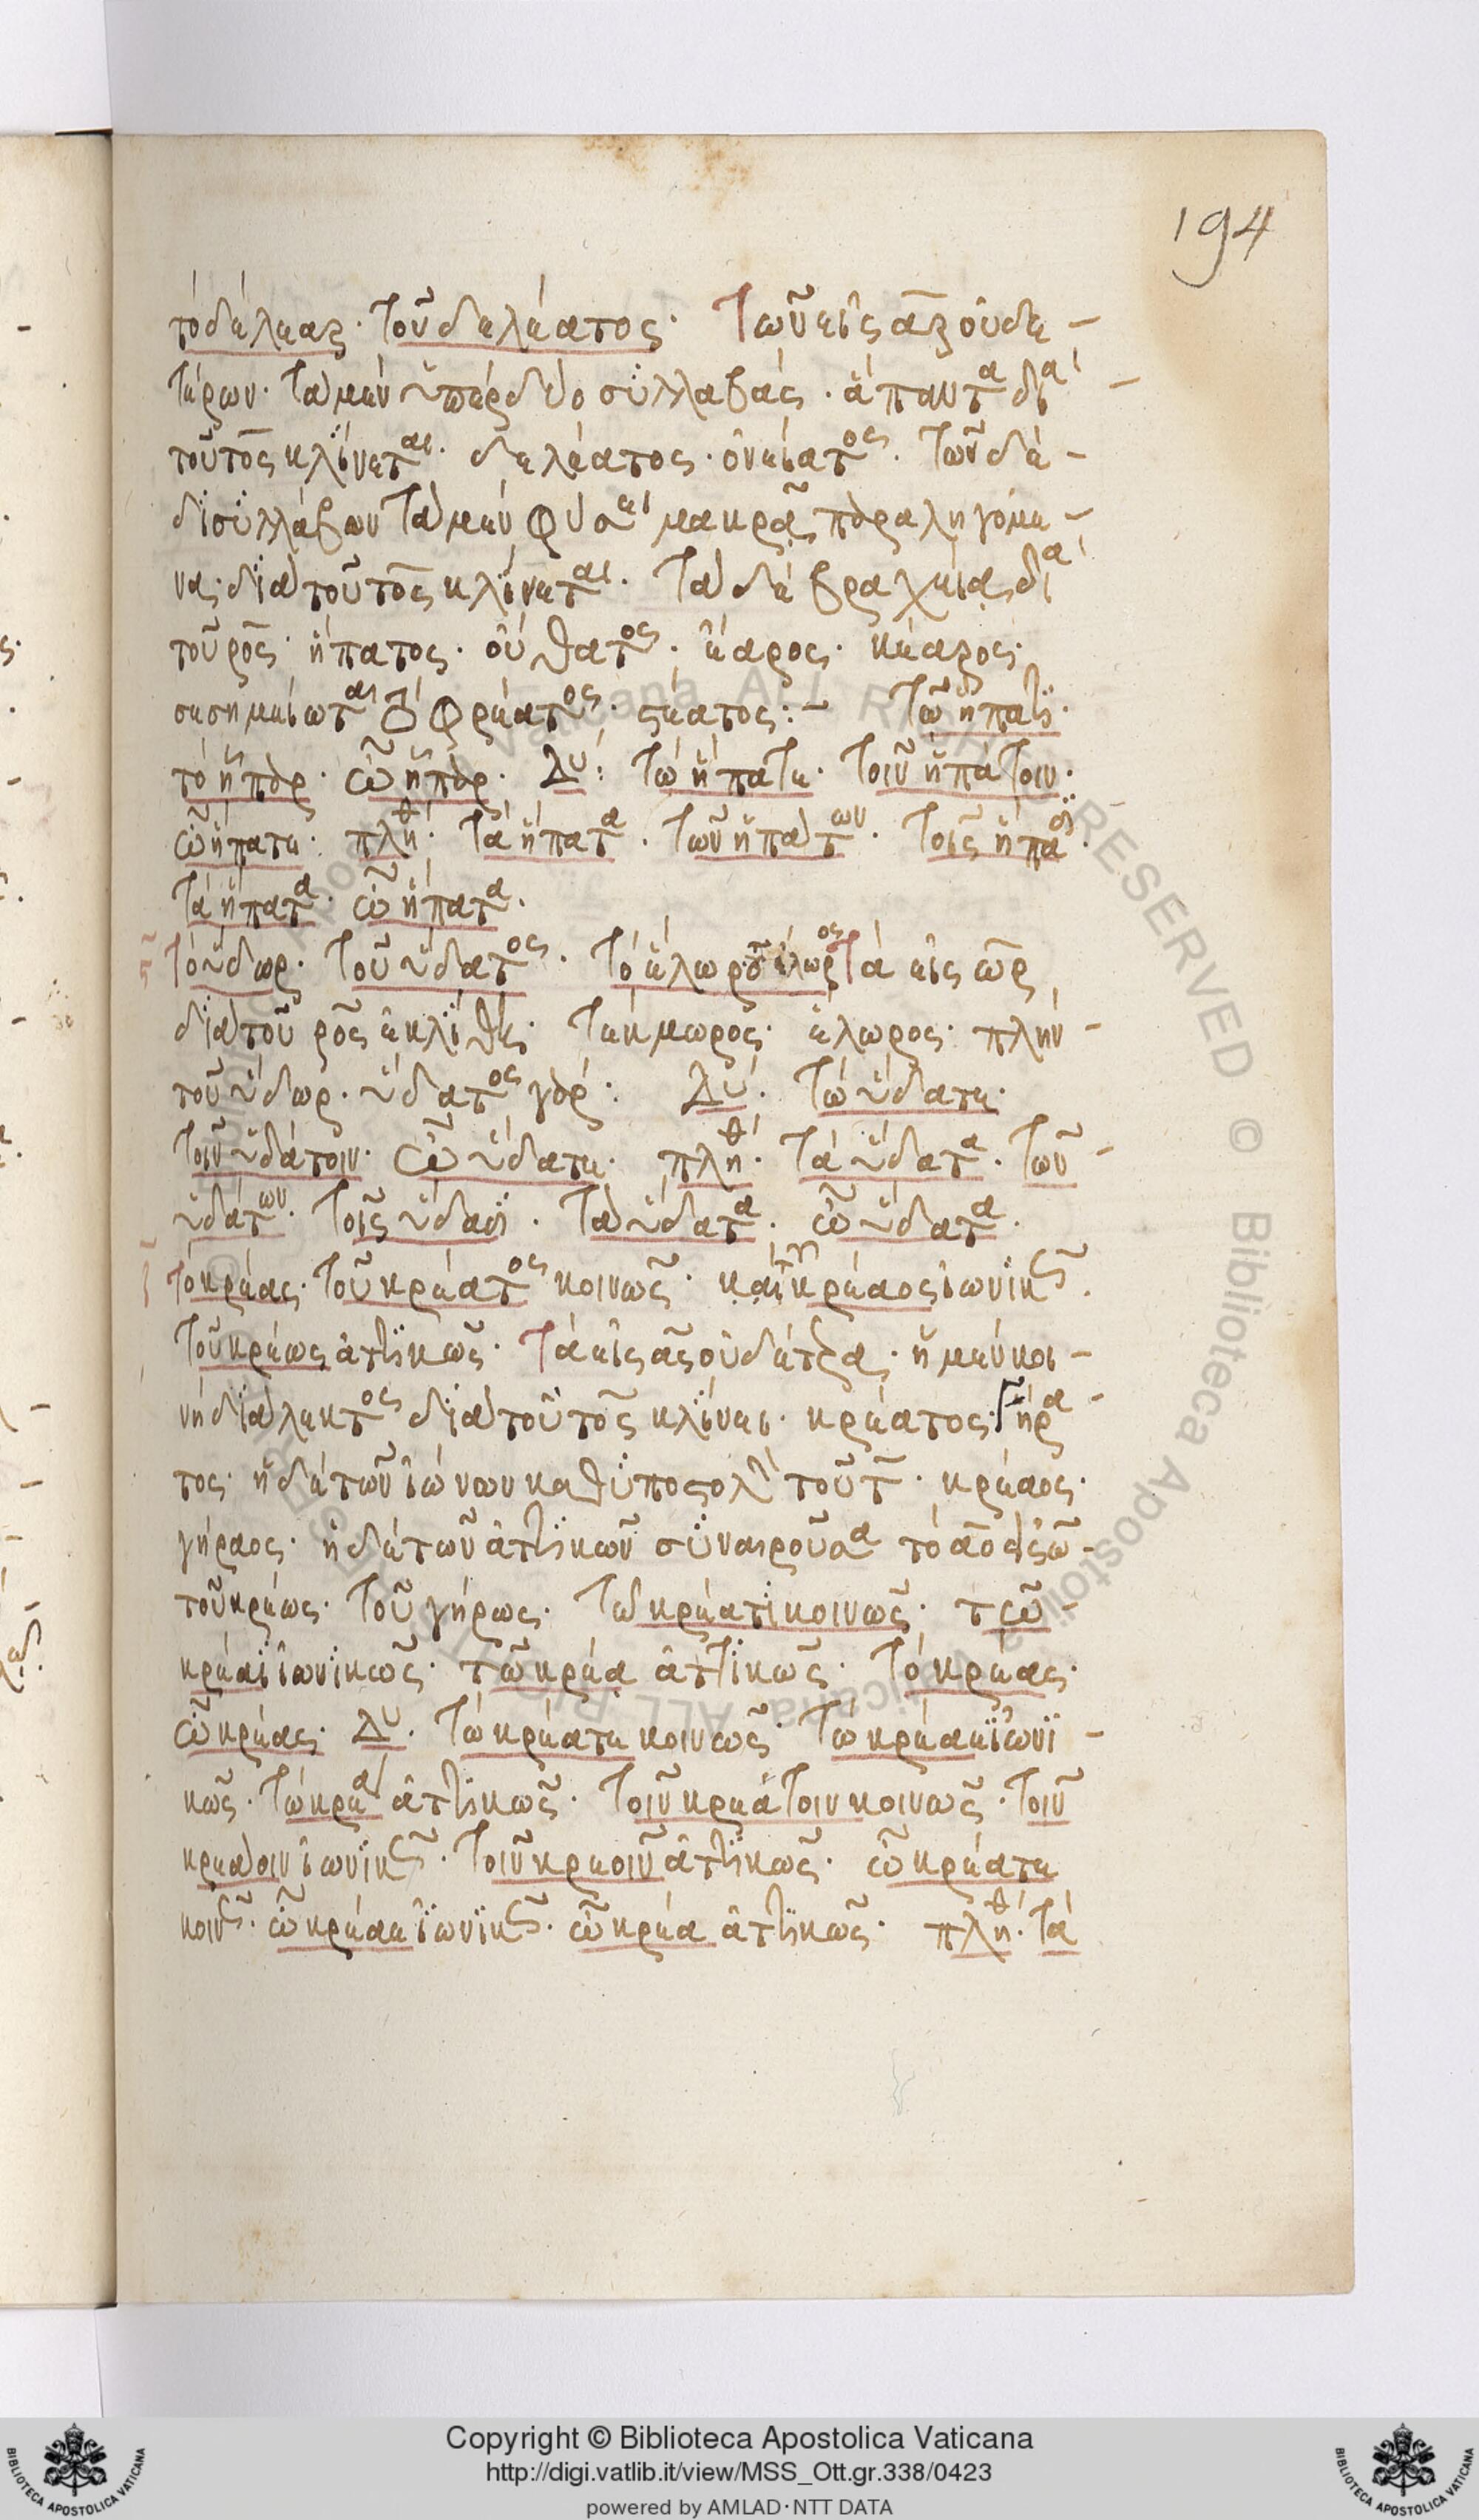 194
τὸ δέλεαρ· τοῦ δελέατος· Τῶν εἰς αρ οὐδε-
τέρων· τὰ μὲν ὑπὲρ δύο συλλαβὰς· ἅπαντα διὰ
τοῦ τος κλίνεται· δελέατος· ὀνείατος· τῶν δὲ-
δισυλλάβων τὰ μὲν φύσει μακρᾷ παραληγόμε-
να· διὰ τοῦ τος κλίνεται· τὰ δὲ βραχείᾳ, διὰ
τοῦ ρος· ἥπατος· οὔθατος· ἔαρος· κέαρος·
σεσημείωται τὸ φρέατος· στέατος:- τῷ ἥπατι·
τὸ ἧπαρ· ὦ ἧπαρ· Δυ: τὼ ἥπατε· τοῖν ἡπάτοιν·
ὦ ἥπατε· πλη^θ· τὰ ἥπατα· τῶν ἡπάτων· τοῖς ἥπασι·
τὰ ἥπατα· ὦ ἥπατα·
τὸ ὕδωρ· τοῦ ὕδατος· τὸ ἕλωρ τοῦ ἕλωρος Τὰ εἰς ωρ
διὰ τοῦ ρος ἐκλίθης· τέκμωρος· ἕλωρος· πλὴν-
τοῦ ὕδωρ· ὕδατος γάρ: Δυ· τὼ ὕδατε·
τοῖν ὑδάτοιν· ὦ ὕδατε· πλη^θ· τὰ ὕδατα· τῶν-
ὑδάτων· τοῖς ὕδασι· τὰ ὕδατα· ὦ ὕδατα·
τὸ κρέας· τοῦ κρέατος κοινῶς· καὶ τοῦ κρέαος ἰωνικῶς·
τοῦ κρέως ἀττικῶς· Τὰ εἰς ας οὐδέτερα· ἡ μὲν κοι-
νὴ διάλεκτος διὰ τοῦ τος κλίνει· κρέατος· γήρα-
τος· ἡ δὲ τῶν ἰώνων καθ' ὑποστολὴν τοῦ τ· κρέαος·
γήραος· ἡ δὲ τῶν ἀττικῶν συναιροῦσα τὸ αο εἰς ω-
τοῦ κρέως· τοῦ γήρως· τῷ κρέατι κοινῶς· τῷ-
κρέαϊ ἰωνικῶς· τῷ κρέᾳ ἀττικῶς· τὸ κρέας·
ὦ κρέας· Δυ· τὼ κρέατε κοινῶς· τὼ κρέαε ἰωνι-
κῶς· τὼ κρέα ἀττικῶς· τοῖν κρεάτοιν κοινῶς· τοῖν
κρεάοιν ἰωνικῶς· τοῖν κρεοῖν ἀττικῶς· ὦ κρέατε
κοινῶς· ὦ κρέαε ἰωνικῶς· ὦ κρέα ἀττικῶς· πλη^θ· τὰ
Copyright © Biblioteca Apostolica Vaticana
http://digi.vatlib.it/view/MSS_Ott.gr.338/0423
powered by AMLAD·NTT DATA